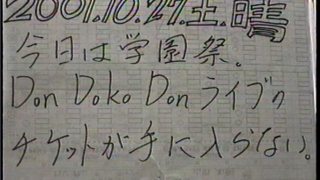 2001.10.27.土.晴
今日は学園祭。
Don Doko Don ライブの
チケットが手に入らない。